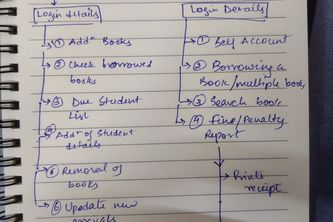 Login details
① Addn Books
② Check borrowed
books
③ Due Student
List
④ Addn of Student
details
⑤ Removal of
books
⑥ Update new
Login Details
① Self Account
② Borrowing a
Book/multiple books
③ Search book
④ Fine/Penalty
Report
→ Prints
receipt